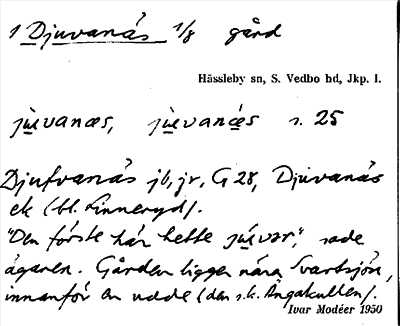 1 Djuvanås 1/8 gård
Hässleby sn, S. Vedbo hd, Jkp. l.
jùvanæs, jùvanæ̀s s. 25
Djufvanås jb, jr, G 28, Djuvanås
ek (bl. Linneryd).
"Den förste här hette júvar", sade
ägaren. Gården ligger nära Svartsjön,
innanför en udde (den s.k. Ängakullen).
Ivar Modéer 1950